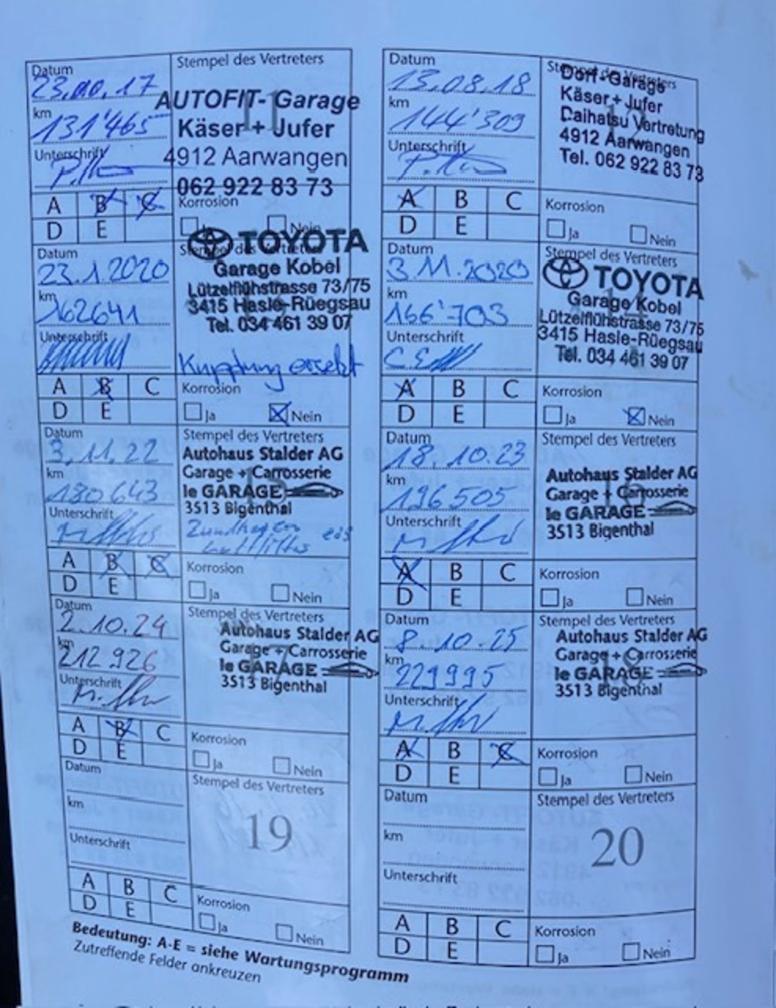 Datum
23.10.17
km
131'465
Unterschrift
A B C
D E
Stempel des Vertreters
11
AUTOFIT-Garage
Käser + Jufer
4912 Aarwangen
062 922 83 73
Korrosion
Ja Nein
Datum
13.08.18
km
144'309
Unterschrift
A B C
D E
Stempel des Vertreters
Dorf-Garage
Käser + Jufer
Daihatsu Vertretung
4912 Aarwangen
Tel. 062 922 83 73
Korrosion
Ja Nein
Datum
23.1.2020
km
162641
Unterschrift
A B C
D E
Stempel des Vertreters
TOYOTA
Garage Kobel
Lützelflühstrasse 73/75
3415 Hasle-Rüegsau
Tel. 034 461 39 07
Kupplung ersetzt
Korrosion
Ja Nein
Datum
3.11.2020
km
166'703
Unterschrift
A B C
D E
Stempel des Vertreters
14
TOYOTA
Garage Kobel
Lützelflühstrasse 73/75
3415 Hasle-Rüegsau
Tel. 034 461 39 07
Korrosion
Ja Nein
Datum
3.11.22
km
180643
Unterschrift
A B C
D E
Stempel des Vertreters
15
Autohaus Stalder AG
Garage + Carrosserie
le GARAGE
3513 Bigenthal
Luftfilter
Korrosion
Ja Nein
Datum
18.10.23
km
196505
Unterschrift
A B C
D E
Stempel des Vertreters
16
Autohaus Stalder AG
Garage + Carrosserie
le GARAGE
3513 Bigenthal
Korrosion
Ja Nein
Datum
2.10.24
km
212926
Unterschrift
A B C
D E
Stempel des Vertreters
17
Autohaus Stalder AG
Garage + Carrosserie
le GARAGE
3513 Bigenthal
Korrosion
Ja Nein
Datum
8.10.25
km
229995
Unterschrift
A B C
D E
Stempel des Vertreters
18
Autohaus Stalder AG
Garage + Carrosserie
le GARAGE
3513 Bigenthal
Korrosion
Ja Nein
Datum
km
Unterschrift
A B C
D E
Stempel des Vertreters
19
Korrosion
Ja Nein
Datum
km
Unterschrift
A B C
D E
Stempel des Vertreters
20
Korrosion
Ja Nein
Bedeutung: A-E = siehe Wartungsprogramm
Zutreffende Felder ankreuzen